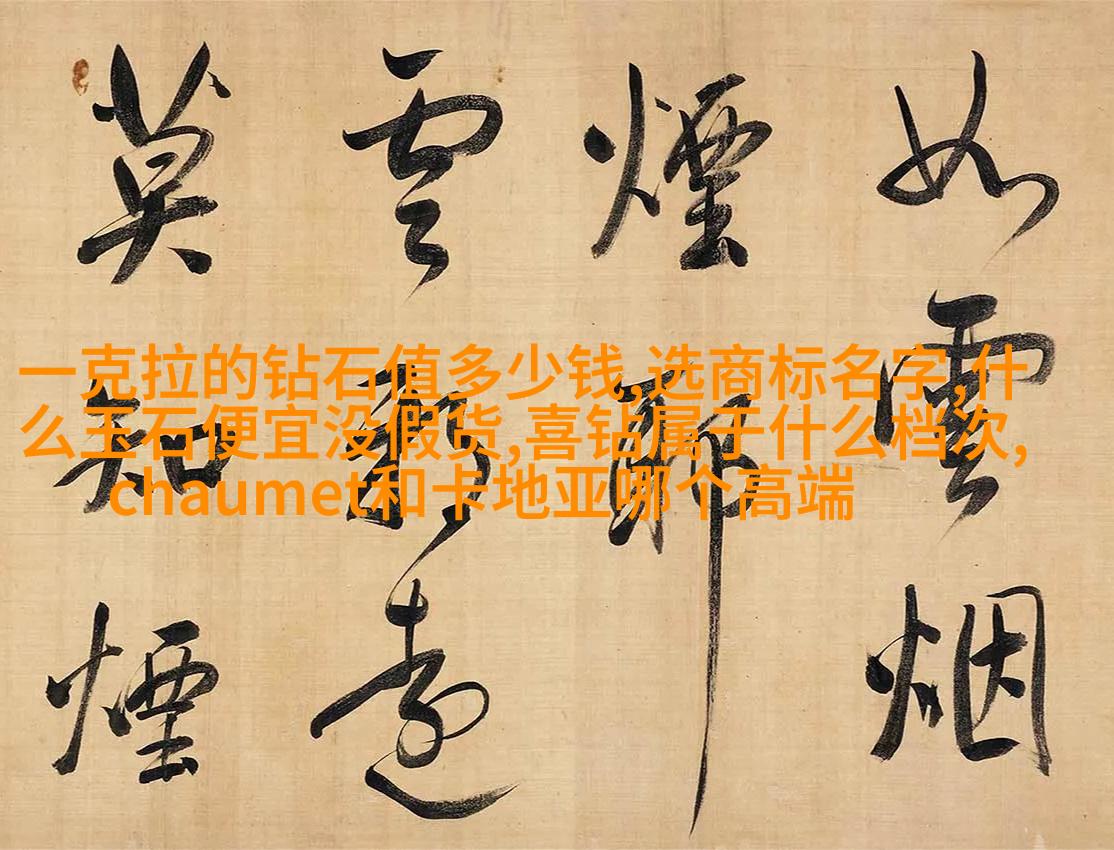 一克拉的钻石值多少钱,选商标名字,什
么玉石便宜没假货,喜钻属于什么档次,
chaumet和卡地亚哪个高端
如雲烟
煙
雲遠
莫知煙